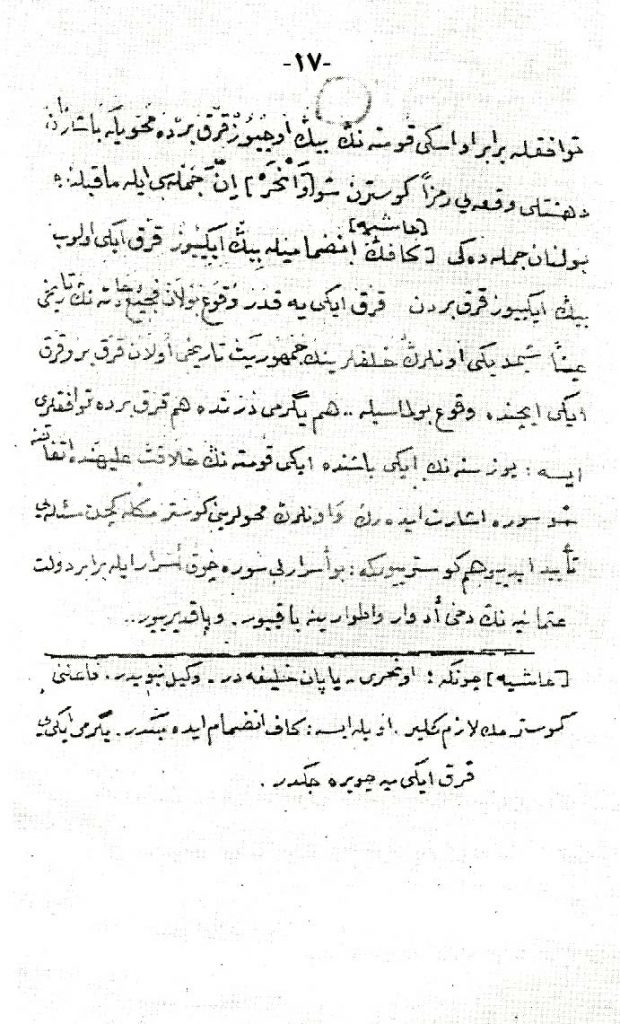 -١٧-
توافقله برابر او اسكى قومته نڭ بيڭ اوچيوز قرق برده محويله باشلانان
دهشتلى وقعه يى رمزاً كوسترن شو [وَانْحَرْ] اِنَّ جمله سى ايله ماقبلنده
بولنان جمله ده كى [كافڭ] [حاشيه] انضماميله بيڭ ايكييوز قرق ايكى اولوب
بيڭ ايكييوز قرق بردن قرق ايكى يه قدر وقوع بولان فجيع حادثه نڭ تاريخى
عيناً شيمديكى اونلرڭ خلفلرينڭ جمهوريت تاريخى اولان قرق بر و قرق
ايكى ايچنده وقوع بولماسيله.. هم يگرمى درتده هم قرق برده توافقلرى
ايسه: يوز سنه نڭ ايكى باشنده ايكى قومته نڭ خلافت عليهنده اتفاقنه
شو سوره اشارت ايده رك و اونلرڭ محولرينى كوسترمكله كچن مسئله يى
تأييد ايدييور هم كوسترييوركه: بو أسرارلى سوره چوق أسرار ايله برابر دولت
عثمانيه نڭ دخى أدوار و اطوارينه باقييور. و باقديرييور..
[حاشيه] چونكه: او نحرى يا پاپان خليفه در. وكيل نبويدر. فاعلنى
كوسترمك لازم كلير. اويله ايسه: كاف انضمام ايده جكدر. يگرمى ايكى يى
قرق ايكى يه چويره جكدر.